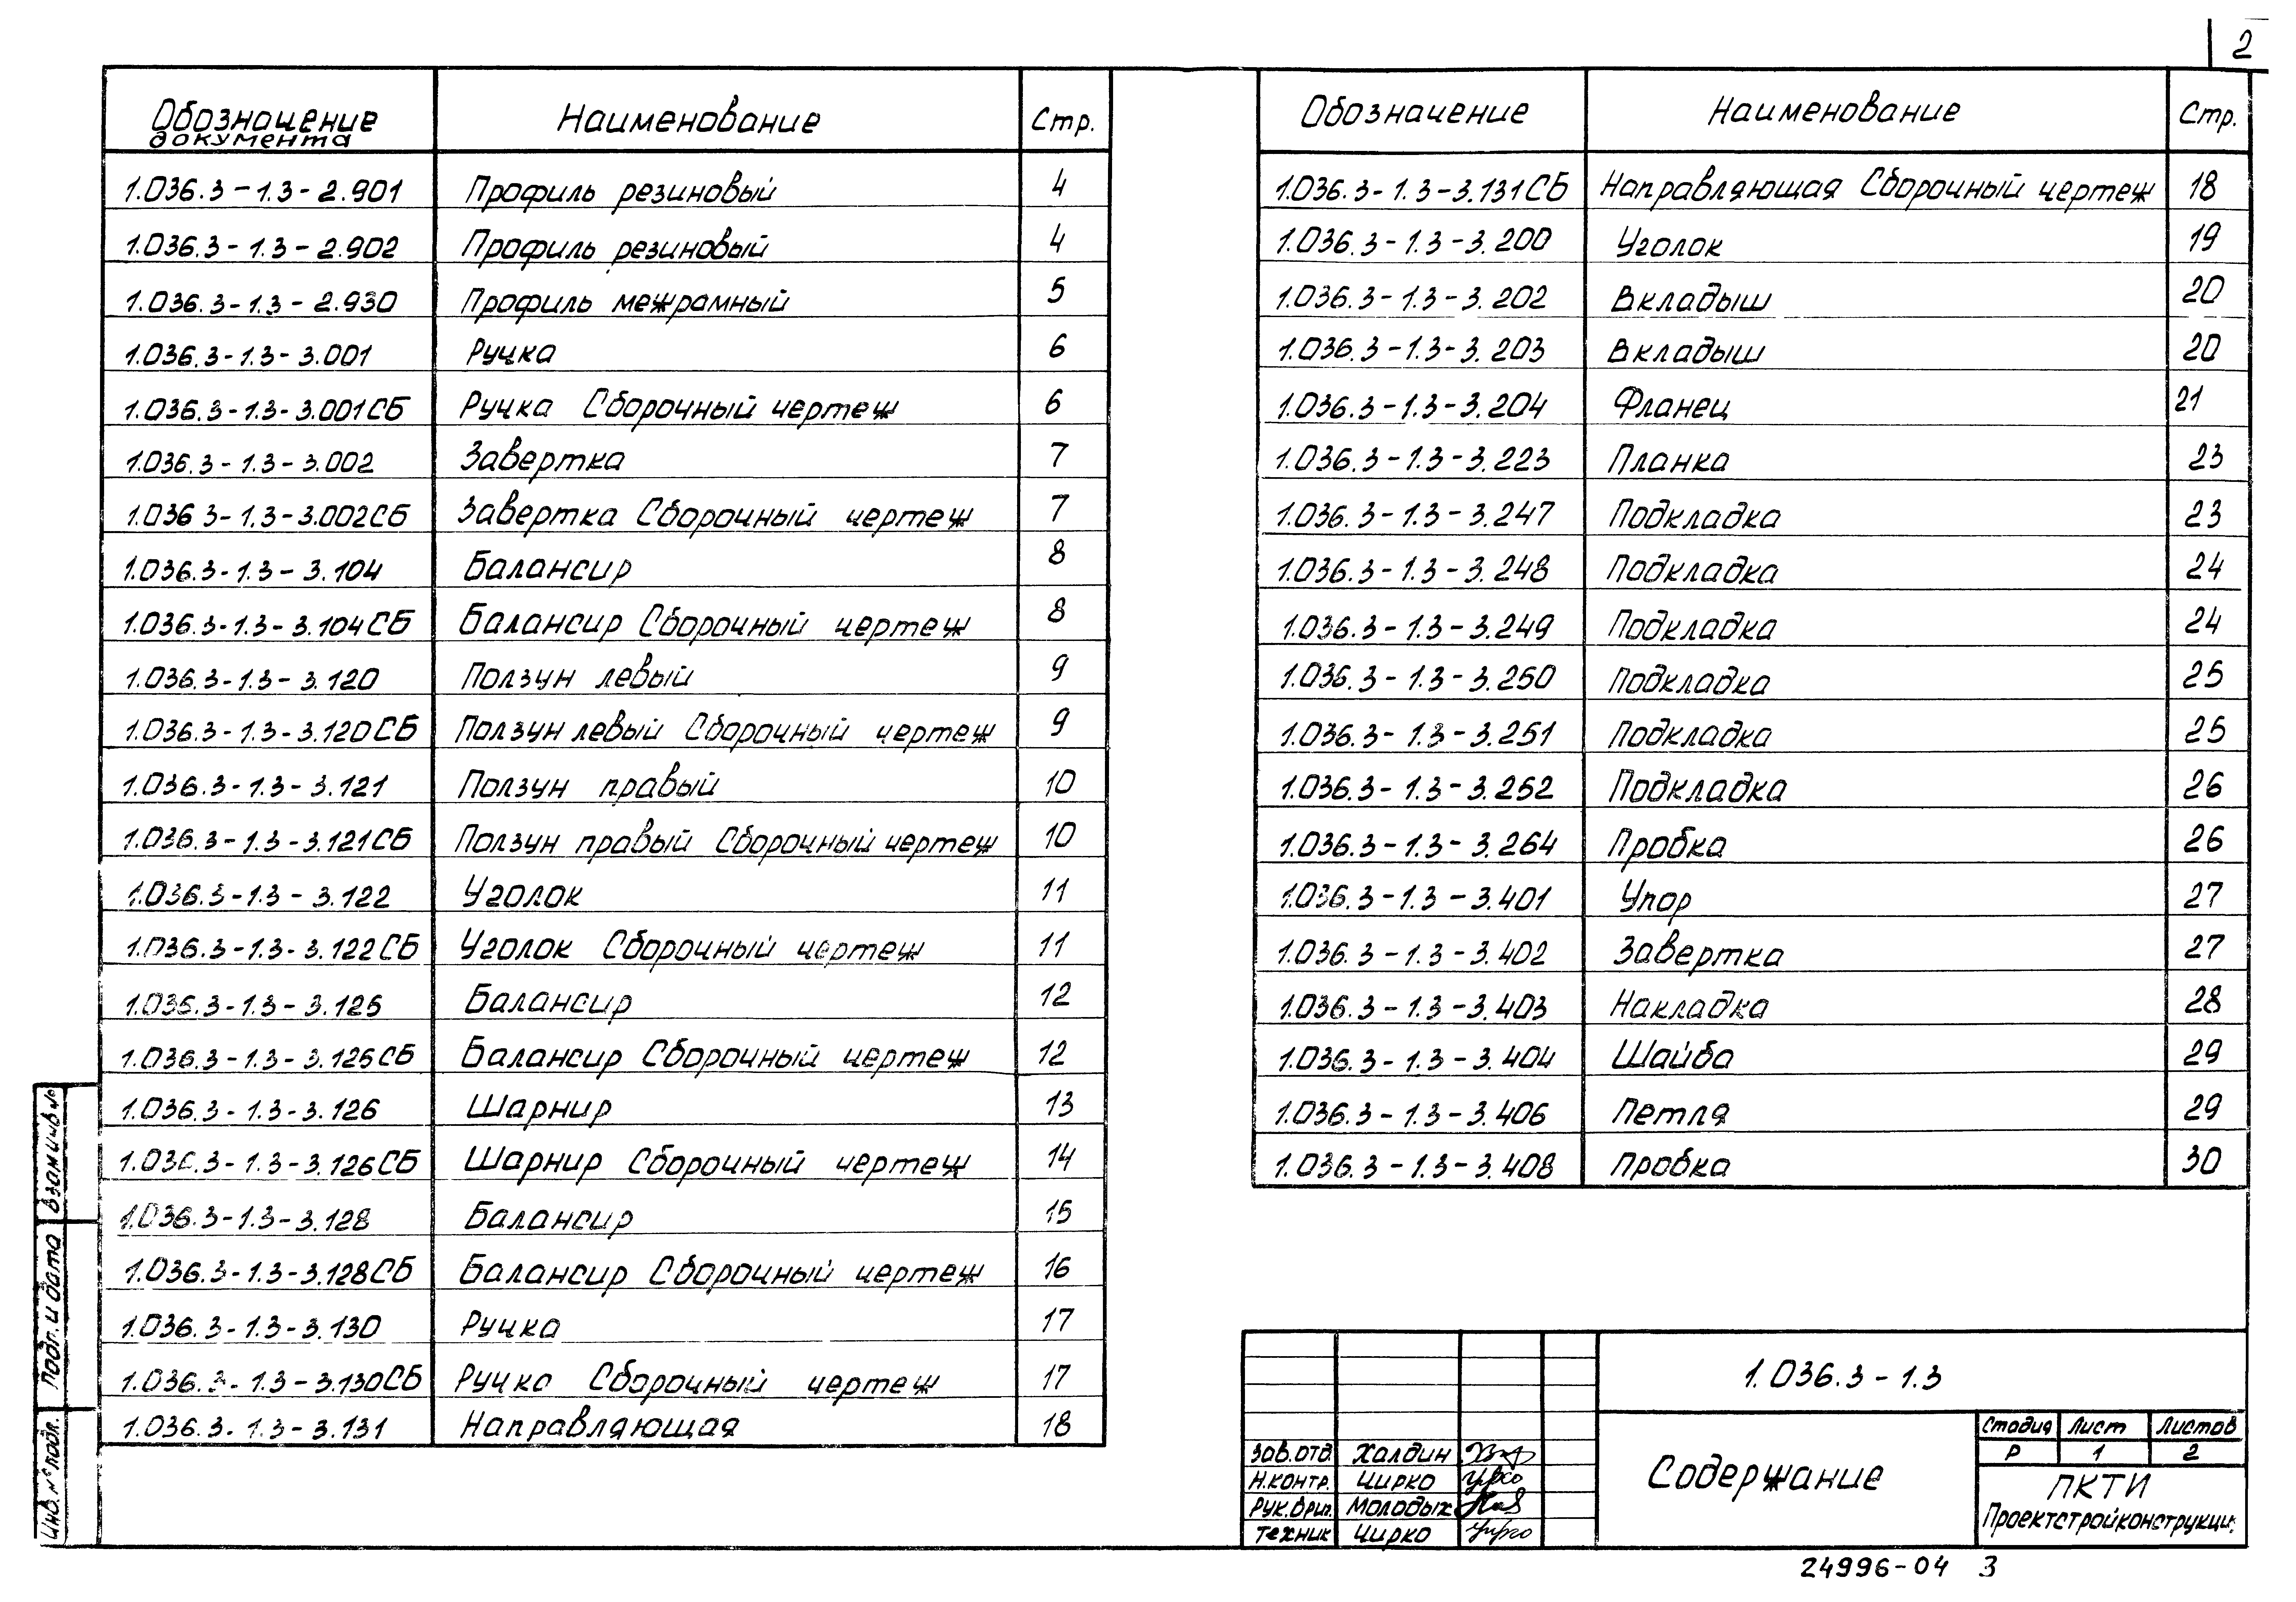 2
Обозначение документа Наименование Стр.
1.036.3-1.3-2.901 Профиль резиновый 4
1.036.3-1.3-2.902 Профиль резиновый 4
1.036.3-1.3-2.930 Профиль межрамный 5
1.036.3-1.3-3.001 Ручка 6
1.036.3-1.3-3.001СБ Ручка Сборочный чертеж 6
1.036.3-1.3-3.002 Завертка 7
1.036 3-1.3-3.002СБ Завертка Сборочный чертеж 7
1.036.3-1.3-3.104 Балансир 8
1.036.3-1.3-3.104СБ Балансир Сборочный чертеж 8
1.036.3-1.3-3.120 Ползун левый 9
1.036.3-1.3-3.120СБ Ползун левый Сборочный чертеж 9
1.036.3-1.3-3.121 Ползун правый 10
1.036.3-1.3-3.121СБ Ползун правый Сборочный чертеж 10
1.036.3-1.3-3.122 Уголок 11
1.036.3-1.3-3.122СБ Уголок Сборочный чертеж 11
1.036.3-1.3-3.125 Балансир 12
1.036.3-1.3-3.125СБ Балансир Сборочный чертеж 12
1.036.3-1.3-3.126 Шарнир 13
1.036.3-1.3-3.126СБ Шарнир Сборочный чертеж 14
1.036.3-1.3-3.128 Балансир 15
1.036.3-1.3-3.128СБ Балансир Сборочный чертеж 16
1.036.3-1.3-3.130 Ручка 17
1.036.3-1.3-3.130СБ Ручка Сборочный чертеж 17
1.036.3-1.3-3.131 Направляющая 18
Обозначение Наименование Стр.
1.036.3-1.3-3.131СБ Направляющая Сборочный чертеж 18
1.036.3-1.3-3.200 Уголок 19
1.036.3-1.3-3.202 Вкладыш 20
1.036.3-1.3-3.203 Вкладыш 20
1.036.3-1.3-3.204 Фланец 21
1.036.3-1.3-3.223 Планка 23
1.036.3-1.3-3.247 Подкладка 23
1.036.3-1.3-3.248 Подкладка 24
1.036.3-1.3-3.249 Подкладка 24
1.036.3-1.3-3.250 Подкладка 25
1.036.3-1.3-3.251 Подкладка 25
1.036.3-1.3-3.252 Подкладка 26
1.036.3-1.3-3.264 Пробка 26
1.036.3-1.3-3.401 Упор 27
1.036.3-1.3-3.402 Завертка 27
1.036.3-1.3-3.403 Накладка 28
1.036.3-1.3-3.404 Шайба 29
1.036.3-1.3-3.406 Петля 29
1.036.3-1.3-3.408 Пробка 30
Взам инв №
Подп. и дата
Инв. № подл.
1.036.3-1.3
Зав.отд. Халдин
Н.контр. Цирко
Рук.бриг. Молодых
Техник Цирко
Содержание
Стадия Лист Листов
Р 1 2
ПКТИ
Проектстройконструкци.
24996-04 3